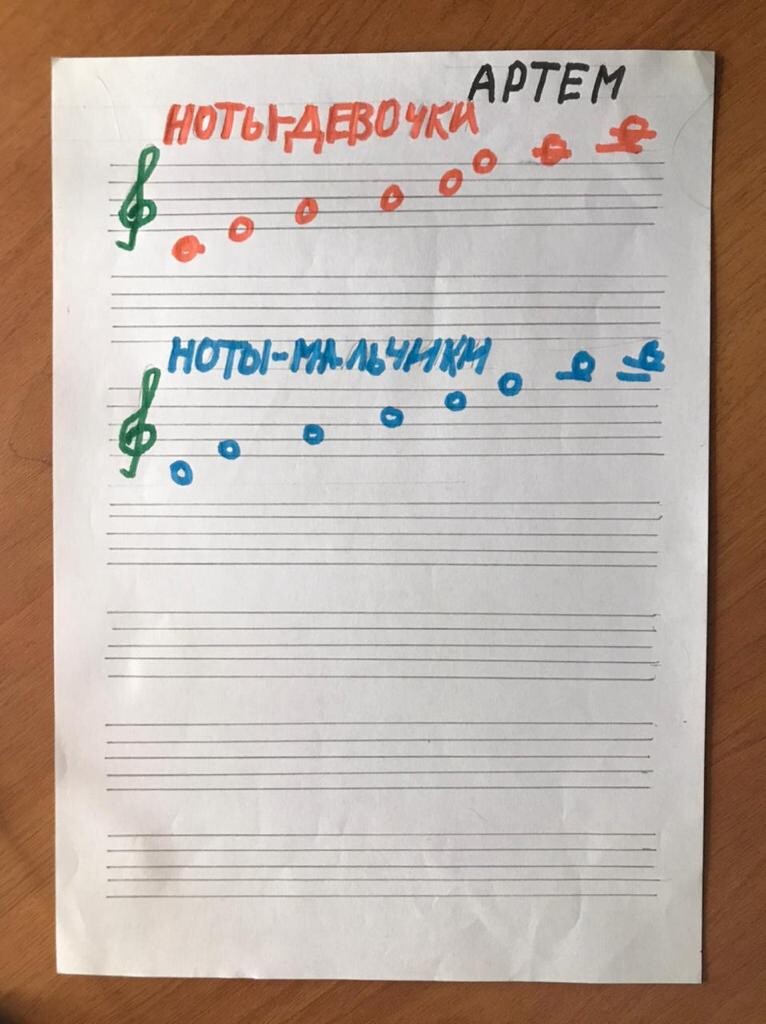 АРТЕМ
НОТЫ-ДЕВОЧКИ
НОТЫ-МАЛЬЧИКИ